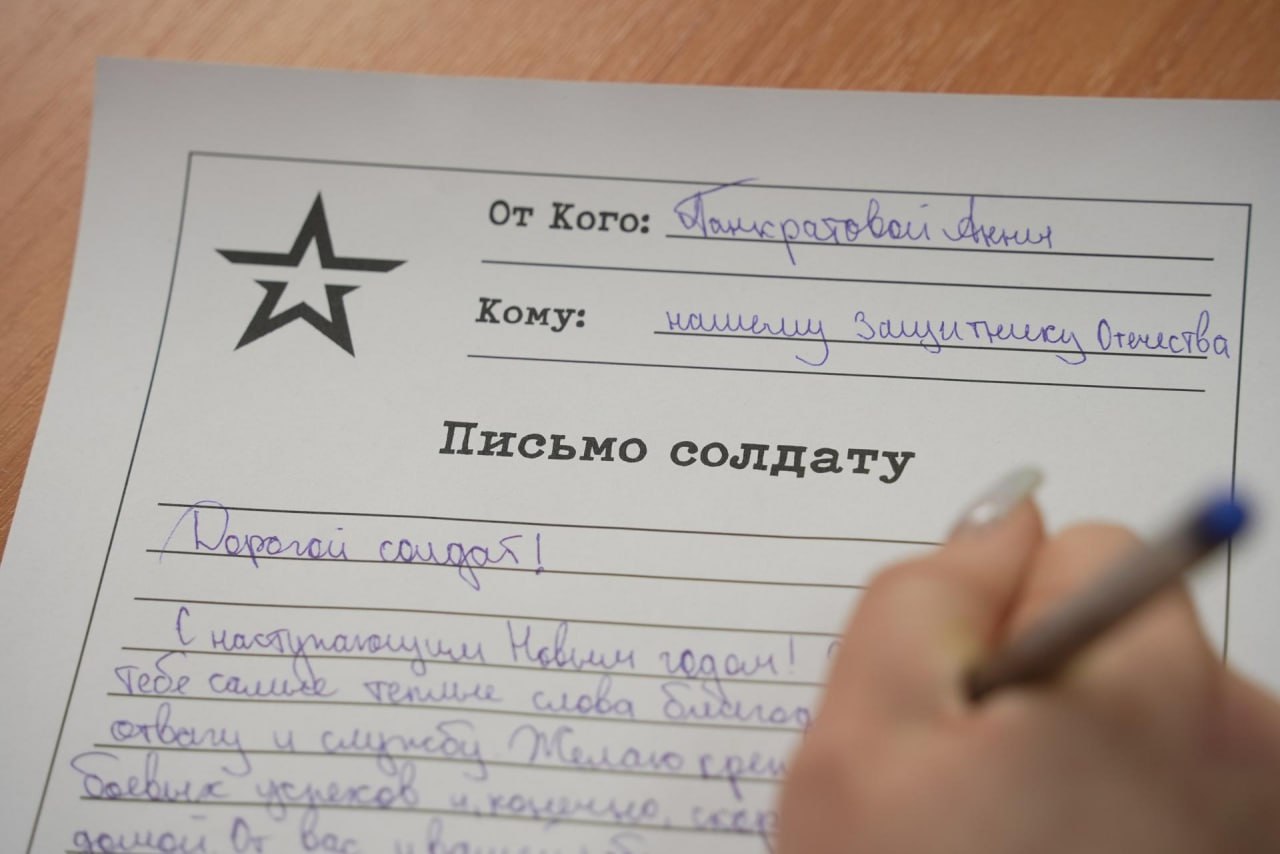 От Кого: Панкратовой Анны
Кому: нашему Защитнику Отечества
Письмо солдату
Дорогой солдат!
С наступающим Новым годом!
тебе самые теплые слова благод
отвагу и службу Желаю креп
боевых успехов и, конечно, скор
домой. От вас